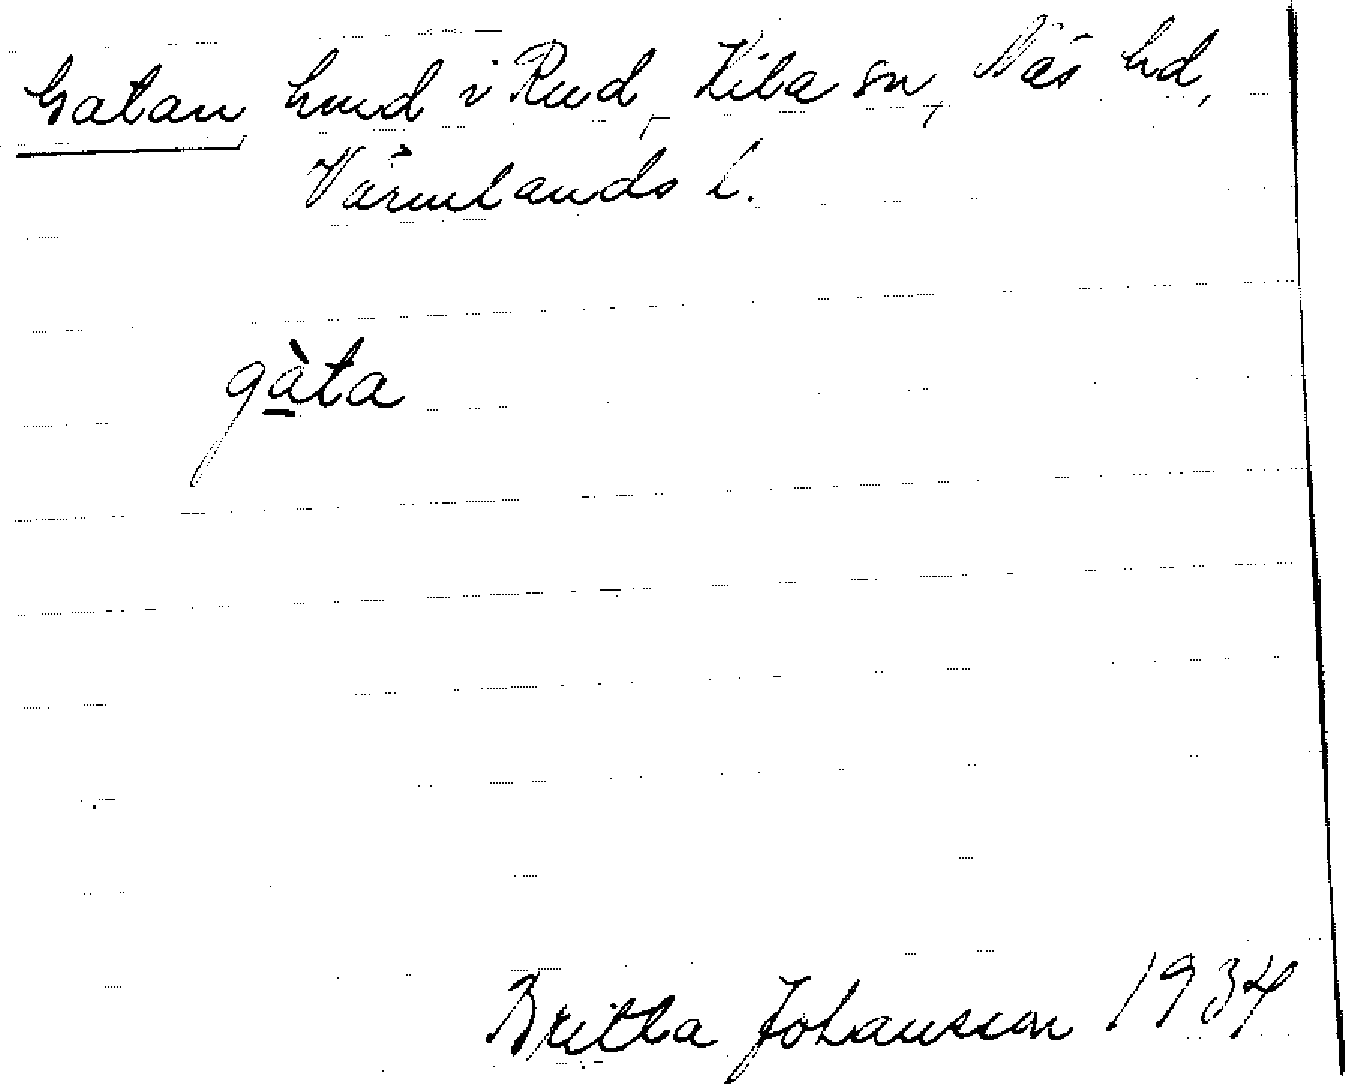 Gatan hmd i Rud, Kila sn, Näs hd,
Värmlands l.
gàta
Britta Johansson 1934